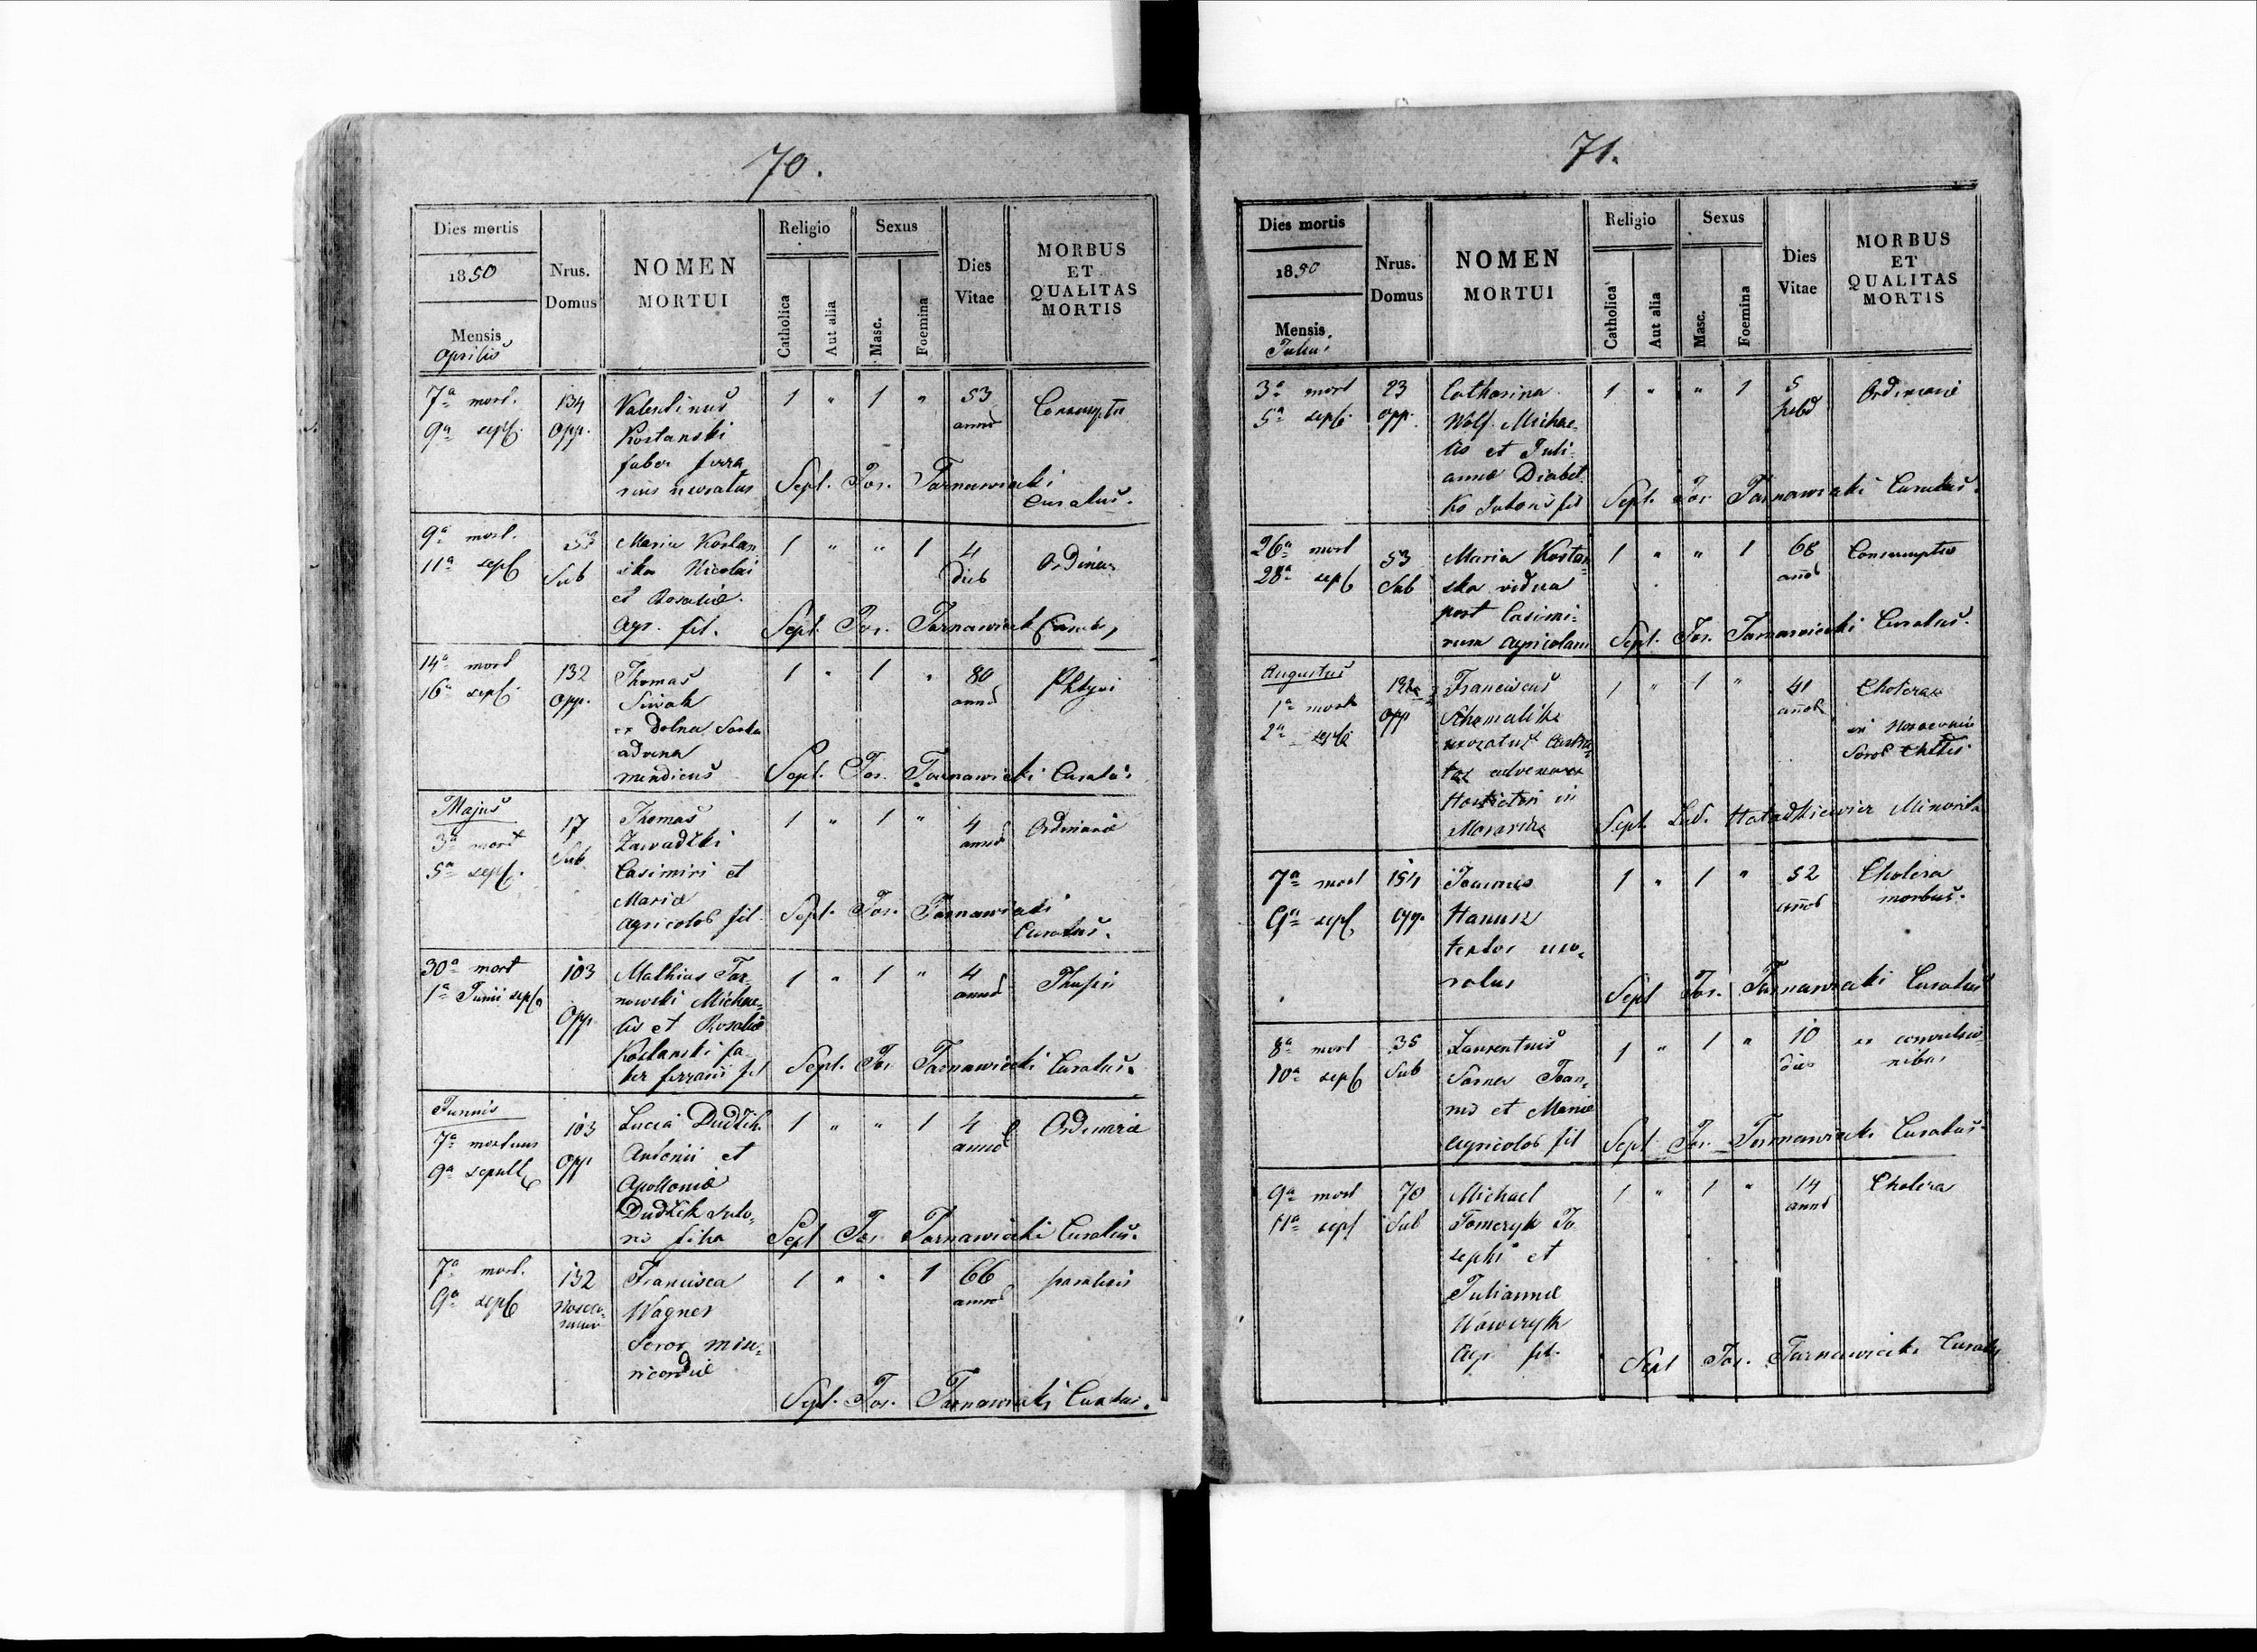 70.
Dies mortis
1850
Mensis
Aprilis
Nrus.
Domus
NOMEN
MORTUI
Religio
Catholica
Aut alia
Sexus
Masc.
Foemina
Dies
Vitae
MORBUS
ET
QUALITAS
MORTIS
7a mort.
9a sep.
134
opp.
Valentinus
Kostanski
faber ferra
rius uxoratus
1 " 1 "
53
annor
Consumptio
Sept. Jos. Tarnawiecki
Curatus.
9a mort.
11a sep
53
Sub
Maria Kostan
ska Nicolai
et Rosaliae
agr. fil.
1 " " 1
4
dieb
Ordinar
Sept. Jos. Tarnawieck
14a mort
16a sep.
132
opp.
Thomas
Siwak
ex Dolna
advena
mendicus
1 " 1 "
80
annor
Phtysi
Sept. Jos. Tarnawiecki Curatus
Majus
3a mort
5a sep.
17
Sub
Thomas
Zawadzki
Casimiri et
Maria
agricolos fil.
1 " 1 "
4
annor
Ordinaria
Sept. Jos. Tarnawiecki
Curatus.
30a mort
1a Junii sep
103
opp
Mathias Tar-
nowski Michae-
lis et Rosaliae
Kostanski fa-
ber ferrarii fil
1 " 1 "
4
annor
Sept. Jos Tarnawiecki Curatus.
Junius
7a mortuus
9a sepult
103
opp
Lucia Dudzik
Antonii et
Apolloniae
Dudzik suto-
ris filia
1 " " 1
4
annor
Ordinaria
Sept Jos Tarnawiecki Curatus.
7a mort.
9a sep
132
Francisca
Wagner
Soror mise-
ricordiae
1 " " 1
66
annor
paralisis
Sept. Jos. Tarnawiecki Curatus.
71.
Dies mortis
1850
Mensis
Julius
Nrus.
Domus
NOMEN
MORTUI
Religio
Catholica
Aut alia
Sexus
Masc.
Foemina
Dies
Vitae
MORBUS
ET
QUALITAS
MORTIS
3a mort
5a sep.
23
opp.
Catharina
Wolf Michae-
lis et Juli-
annae Diabel
ko sutoris fil
1 " " 1
5
hebd
Ordinaria
Sept. Jos Tarnawiecki Curatus.
26a mort
28a sep
53
Sub
Maria Kostan
ska vidua
post Casimi-
rum agricolam
1 " " 1
68
anor
Consumptio
Sept. Jos. Tarnawiecki Curatus.
Augustus
1a mort
2a sep
opp
Franciscus
uxoratus
advena
in
Moravia
1 " 1 "
41
anor
Cholera
in
Soror
Sept. Lud. Minorita
7a mort
9a sep
154
opp.
Joannes
Hanusz
textor uxo-
ratus
1 " 1 "
52
anor
Cholera
morbus.
Sept Jos. Tarnawiecki Curatus
8a mort
10a sep
35
Sub
Laurentius
Sarna Joan-
nis et Mariae
agricolos fil
1 " 1 "
10
dies
ex convulsio
nibus
Sept Jos Tarnawiecki Curatus
9a mort
11a sep
70
Sub
Michael
Tomczyk Jo
sephi et
Juliannae
Wawczyk
agr. fil.
1 " 1 "
14
annor
Cholera
Sept Jos. Tarnawiecki Curatus